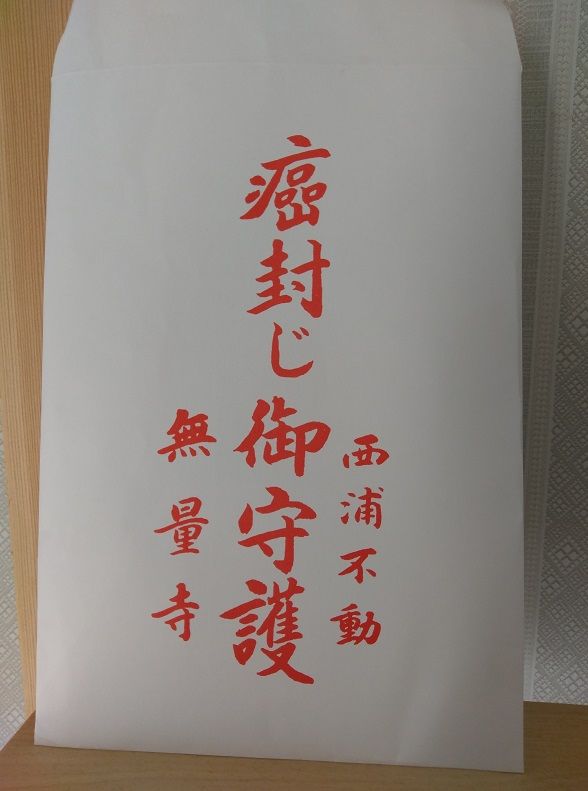 西浦不動
癌封じ御守護
無量寺